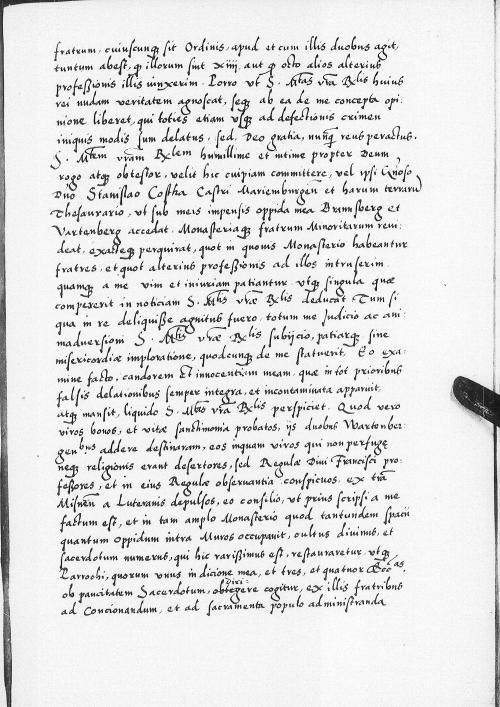 fratrum, cuiuscunq3 sit Ordinis, apud et cum illis duobus agit,
tuntum abest, q illorum sint xiiii, aut q octo alios alterius
professionis illis iunxerim. Porro ut S. Mtas vra Rlis huius
rei nudam veritatem agnoscat, seq3 ab ea de me concepta opi,
nione liberet, qui toties etiam usq3 ad defectionis crimen
iniquis modis sum delatus, sed, Deo gratia, nunq reus peractus.
S. Mtem vram Rlem humillime et intime propter Deum,
rogo atq3 obtestor, velit hic cuipiam committere, vel ipsi Gnoso
Dno Stanislao Costka Castri Mariemburgen et harum terraru
Thesaurario, ut sub meis impensis oppida mea Brunsberg et
Vartenberg accedat, Monasteriaq3 fratrum Minoritarum reui:
deat, exacteq3 perquirat, quot in quouis Monasterio habeantur
fratres, et quot alterius professionis ad illos intruserim,
quamq3 a me vim et iniuriam patiantur. utq3 singula quæ
compererit in noticiam S. Mtis vræ Rlis deducat. Tum si
qua in re deliquisse agnitus fuero, totum me Iudicio ac ani:
maduersioni S. Mtis vræ Rlis subijcio, patiarq3 sine
misericordiæ imploratione, quodcunq3 de me statuerit. Eo exa:
mine facto, candorem et innocentiam meam, quæ in tot prioribus
falsis delationibus semper integra, et incontaminata apparuit,
atq3 mansit, liquido S. Mtas vra Rlis perspiciet. Quod vero
viros bonos, et vitæ sanctimonia probatos, ijs duobus Wartenber:
genbus addere destinaram, eos inquam viros qui non perfugę
neq3 religionis erant desertores, sed Regulæ Diui Francisci pro:
fessores, et in eius Regulæ obseruantia conspicuos, ex tra
Misnen a Luteranis depulsos, eo consilio, ut prius scripsi a me
factum est, et in tam amplo Monasterio quod tantundem spacii
quantum oppidum intra Muros occupauit, cultus diuinus, et
sacerdotum numerus, qui hic rarissimus est, restauraretur. utq3
Parrochi, quorum unus in dicione mea, et tres, et quatuor Eccas,
ob paucitatem Sacerdotum, obtegere cogitur, ex illis fratribus
ad Concionandum, et ad sacramenta populo administranda